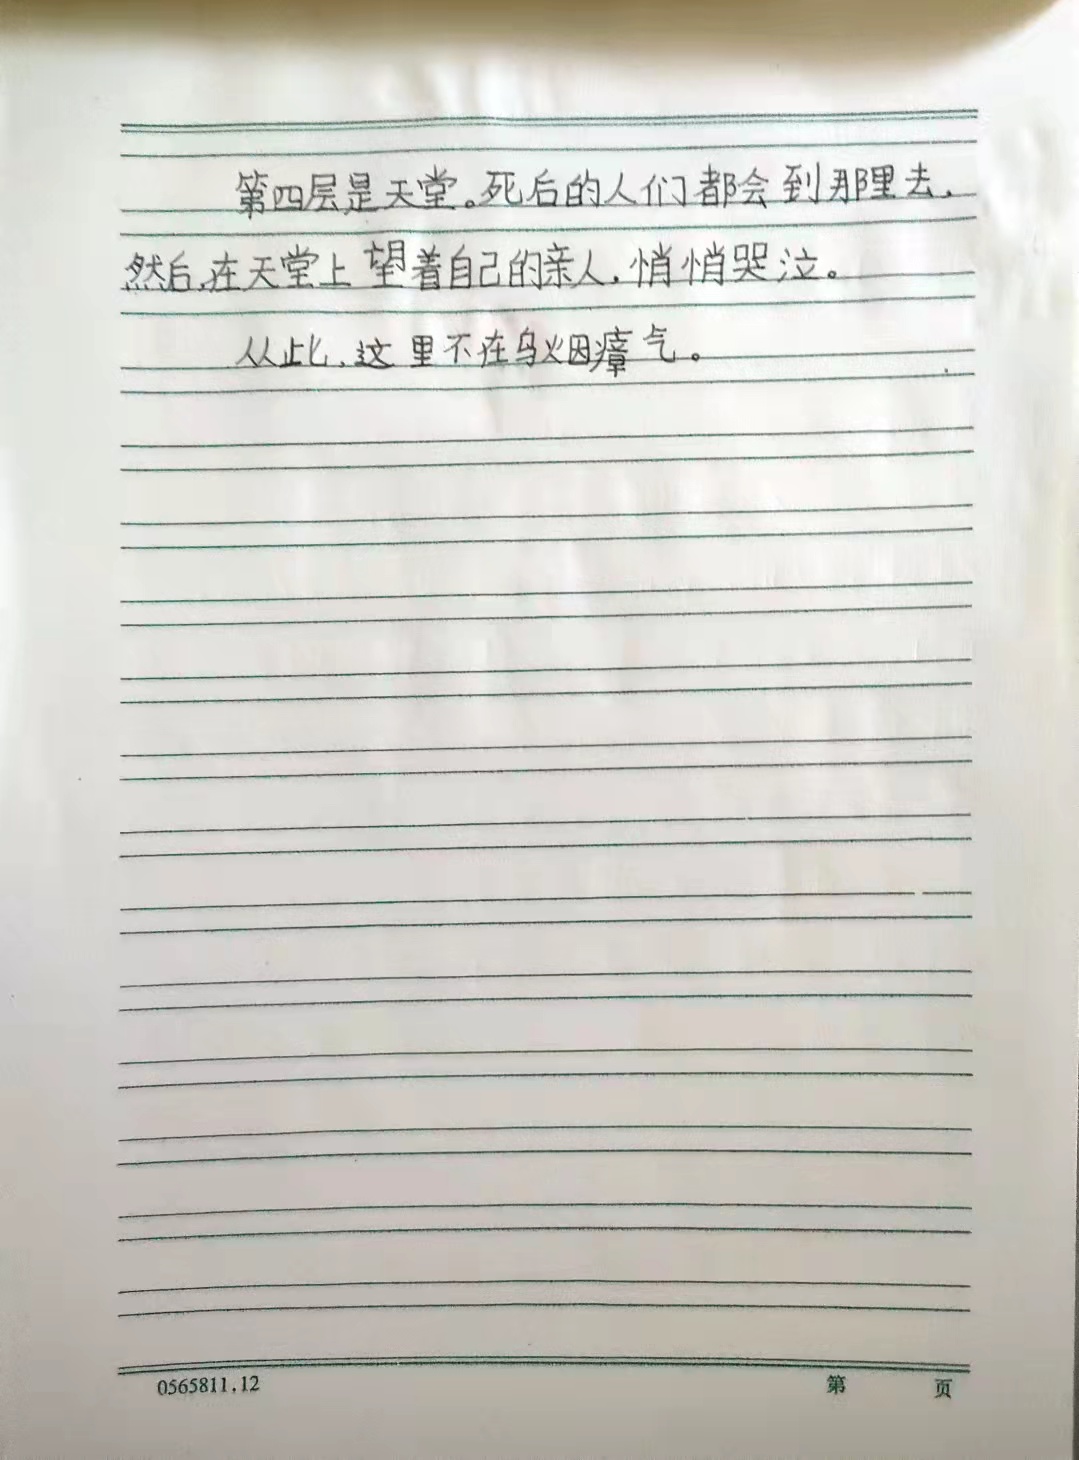 第四层是天堂。死后的人们都会到那里去,
然后,在天堂上望着自己的亲人,悄悄哭泣。
从此,这里不在乌烟瘴气。
0565811.12 第 页